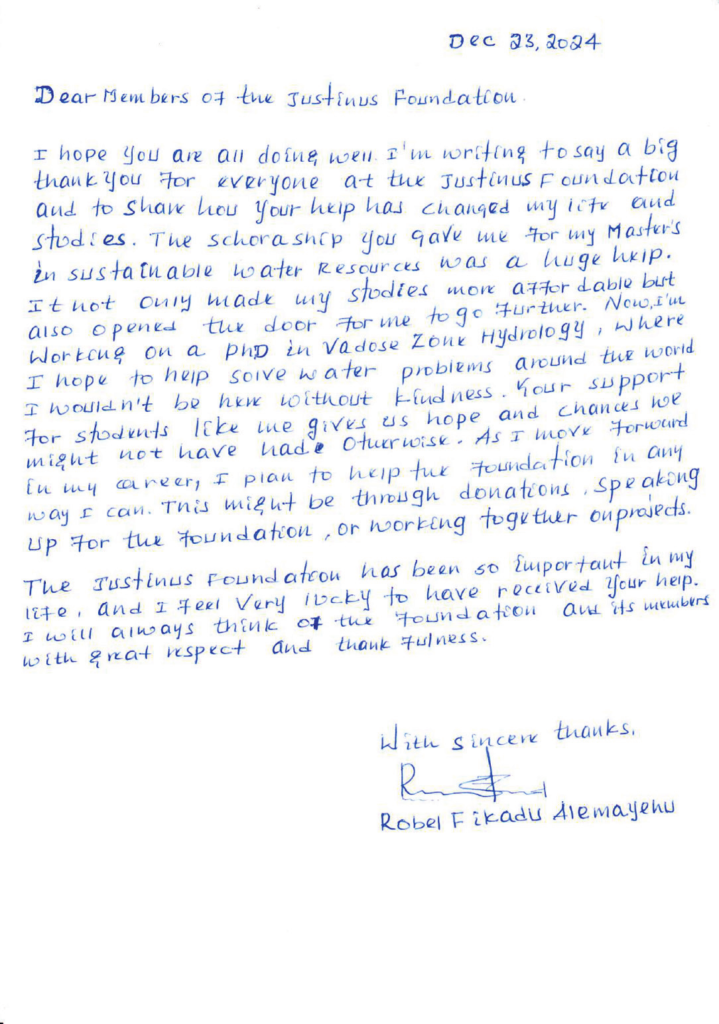 Dec 23, 2024
Dear Members of the Justinus Foundation.
I hope you are all doing well. I'm writing to say a big
thank you for everyone at the Justinus Foundation
and to share how your help has changed my life and
studies. The schoraship you gave me for my Master's
in sustainable water Resources was a huge help.
It not only made my studies more affordable but
also opened the door for me to go further. Now, I'm
working on a PhD in Vadose Zone Hydrology, where
I hope to help solve water problems around the world
I wouldn't be here without kindness. Your support
for students like me gives us hope and chances we
might not have had otherwise. As I move forward
in my career, I plan to help the foundation in any
way I can. This might be through donations, speaking
up for the foundation, or working together on projects.
The Justinus Foundation has been so important in my
life, and I feel very lucky to have received your help.
I will always think of the foundation and its members
with great respect and thankfulness.
With sincere thanks,
Robel Fikadu Alemayehu